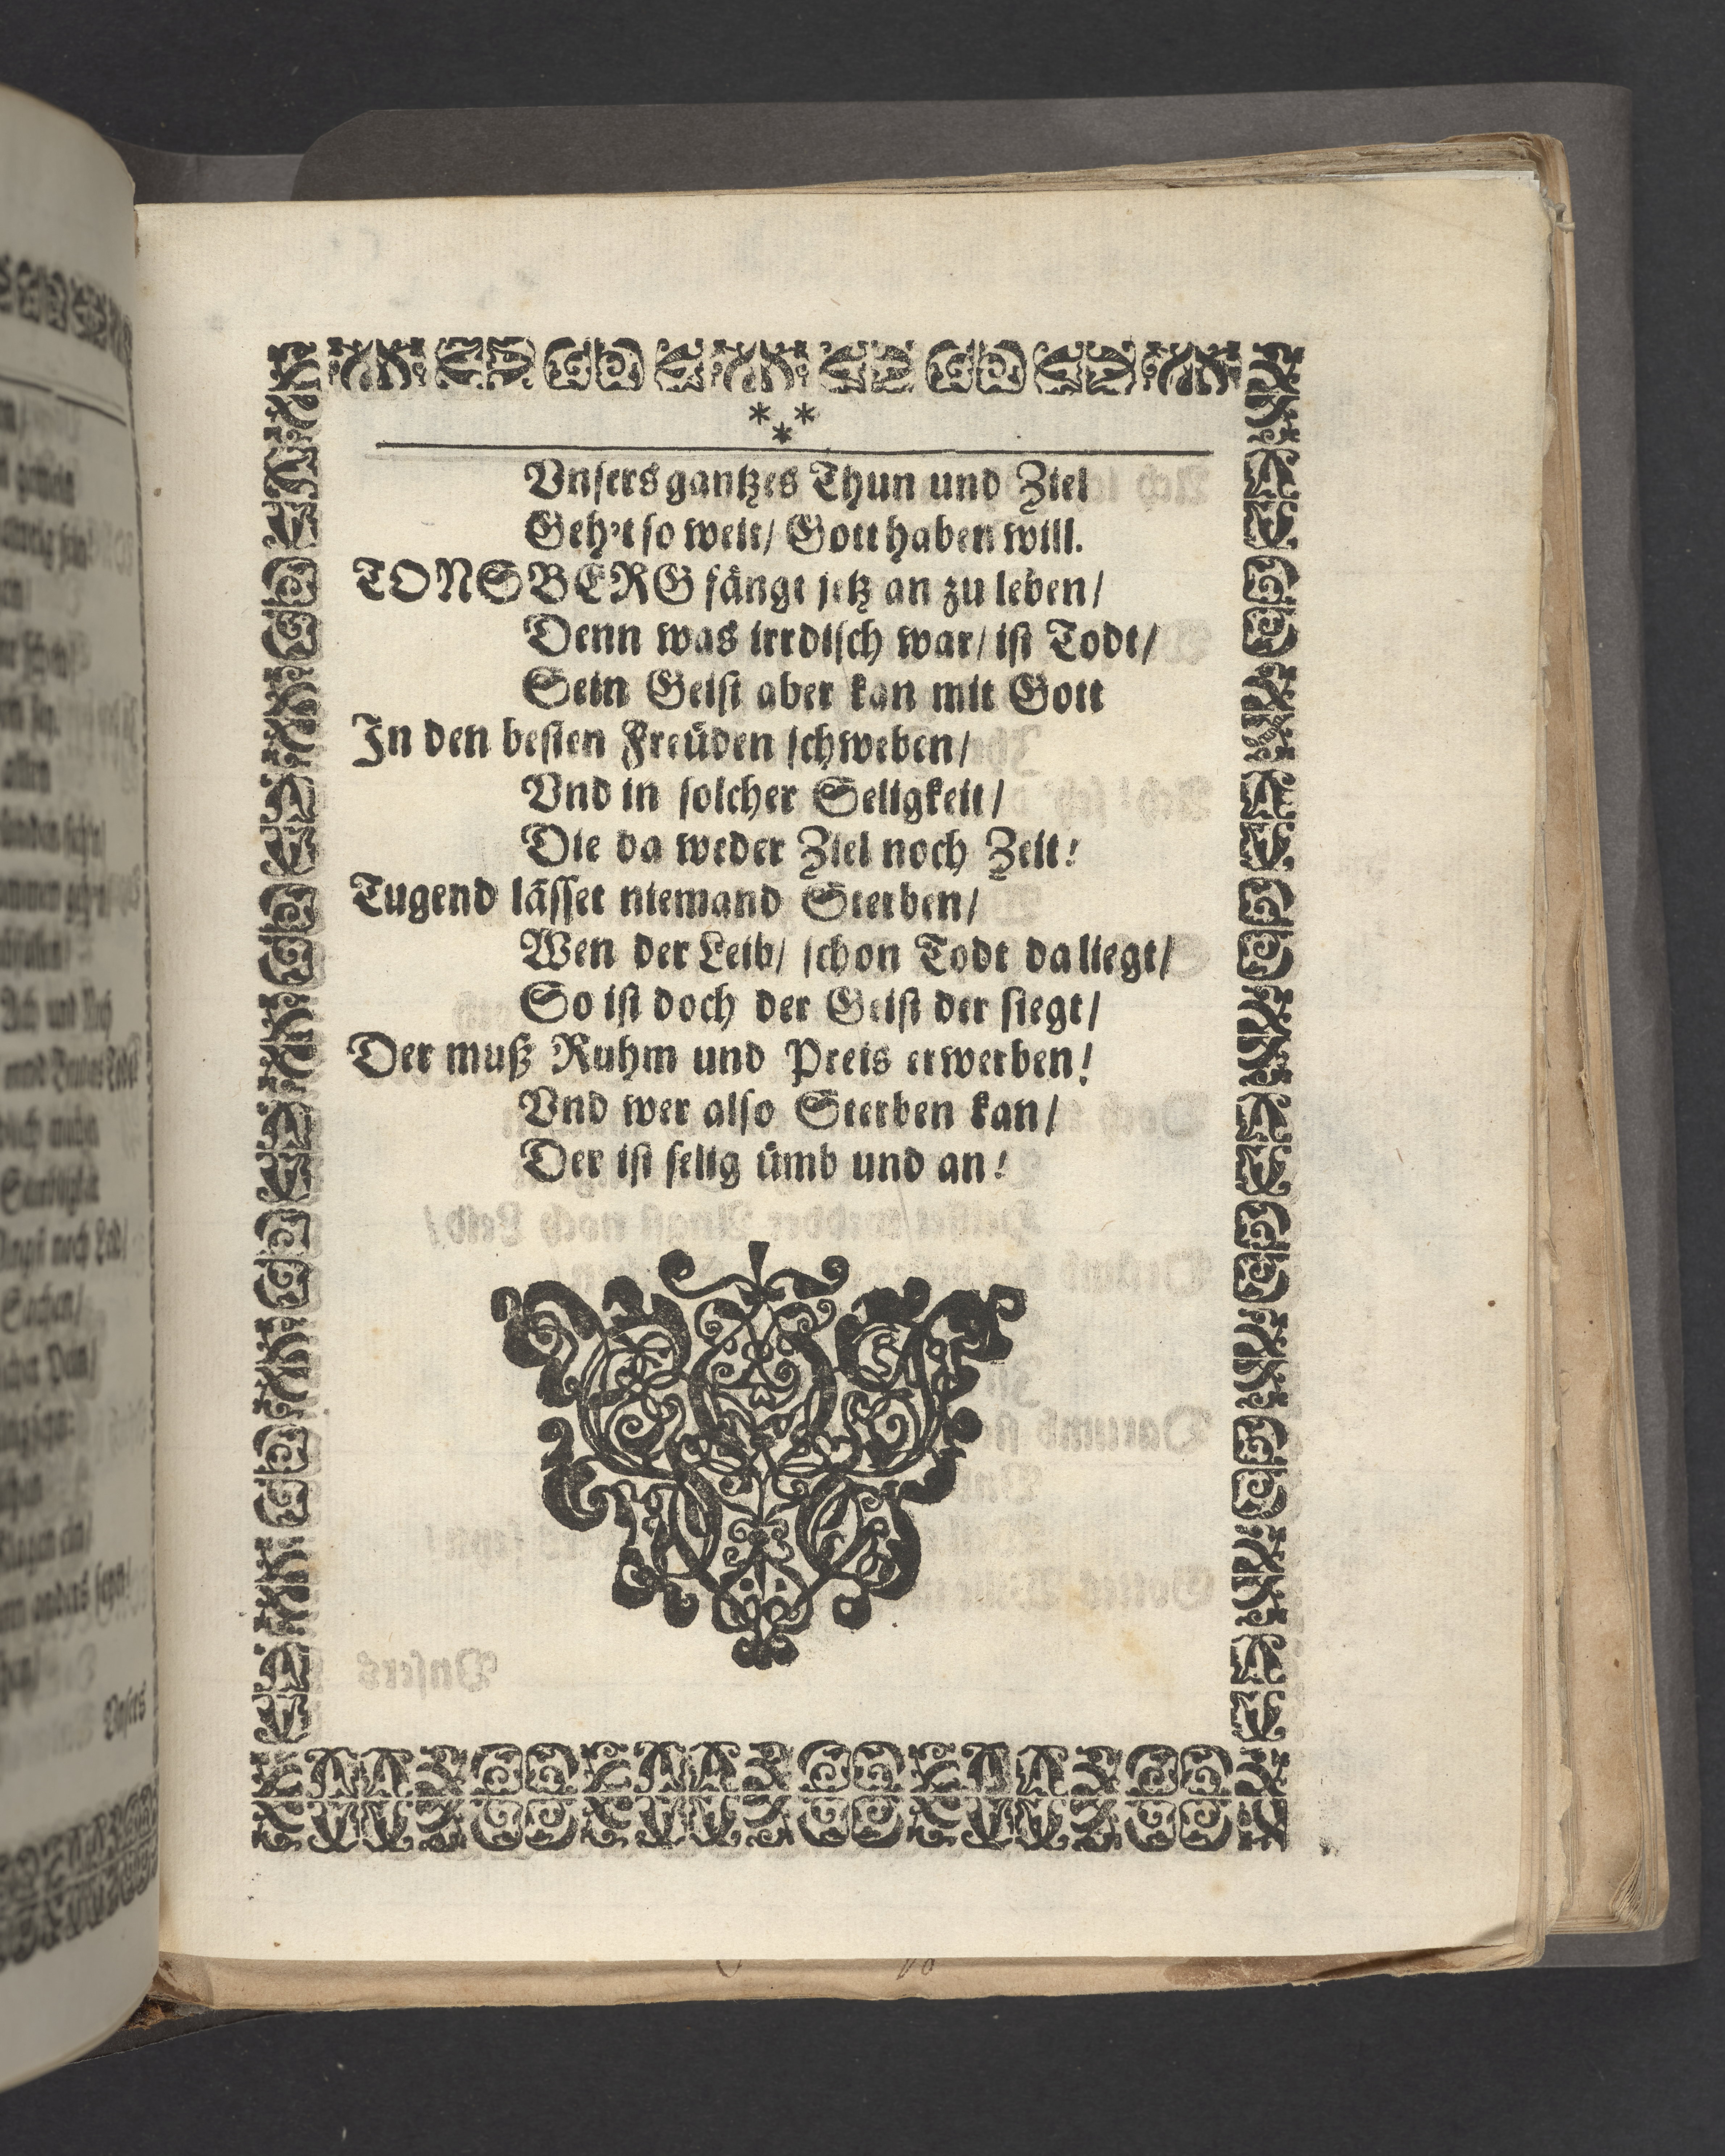 * * *
Vnsers gantzes Thun und Ziel
Geh't so weit/ Gott haben will.
TONSBERG fängt jetz an zu leben/
Denn was irrdisch war/ ist Todt/
Sein Geist aber kan mit Gott
In den besten Freüden schweben/
Vnd in solcher Seligkeit/
Die da weder Ziel noch Zeit!
Tugend lässet niemand Sterben/
Wen der Leib/ schon Todt da liegt/
So ist doch der Geist der siegt/
Der muß Ruhm und Preis erwerben!
Vnd wer also Sterben kan/
Der ist selig ümb und an!